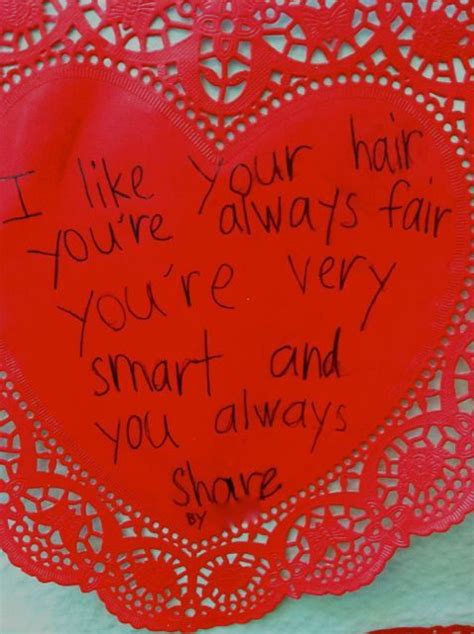 I like your hair
you're always fair
you're very
smart and
you always
share
BY